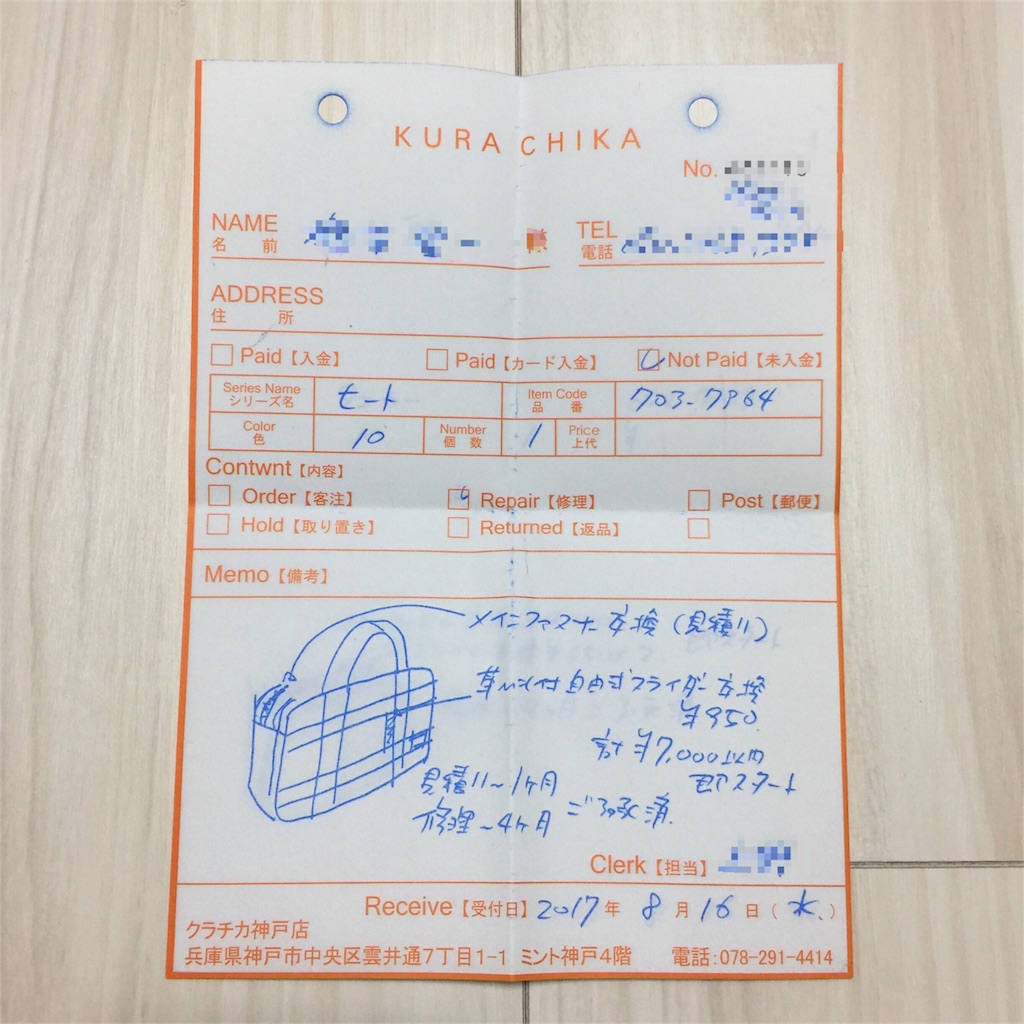 KURA CHIKA
No.
NAME
名 前 様
TEL
電話
ADDRESS
住 所
Paid【入金】 Paid【カード入金】 Not Paid【未入金】
Series Name
シリーズ名 ヒート
Item Code
品 番 703-7964
Color
色 10
Number
個 数 1
Price
上代
Contwnt【内容】
Order【客注】 Repair【修理】 Post【郵便】
Hold【取り置き】 Returned【返品】
Memo【備考】
メインファスナー交換(見積り)
付自由式スライダー交換
¥950
計¥7,000以内
即スタート
見積り〜1ヶ月
修理〜4ヶ月 ご了承済
Clerk【担当】
Receive【受付日】2017年 8月 16日(水)
クラチカ神戸店
兵庫県神戸市中央区雲井通7丁目1-1 ミント神戸4階 電話:078-291-4414